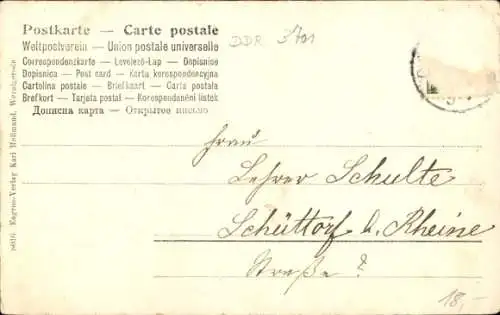 Postkarte — Carte postale
Weltpostverein — Union postale universelle
Correspondenzkarte — Levelező-Lap — Dopisnice
Dopisnica — Post card — Karta korespondencyjna
Cartolina postale — Briefkaart — Carta postala
Brefkort — Tarjeta postal — Korespondenční lístek
Дописна карта — Открытое письмо
DDR 3701
Frau
Lehrer Schulte
Schüttorf b. Rheine
Straße?
18,-
8616 Engros-Verlag Karl Hoßmund,